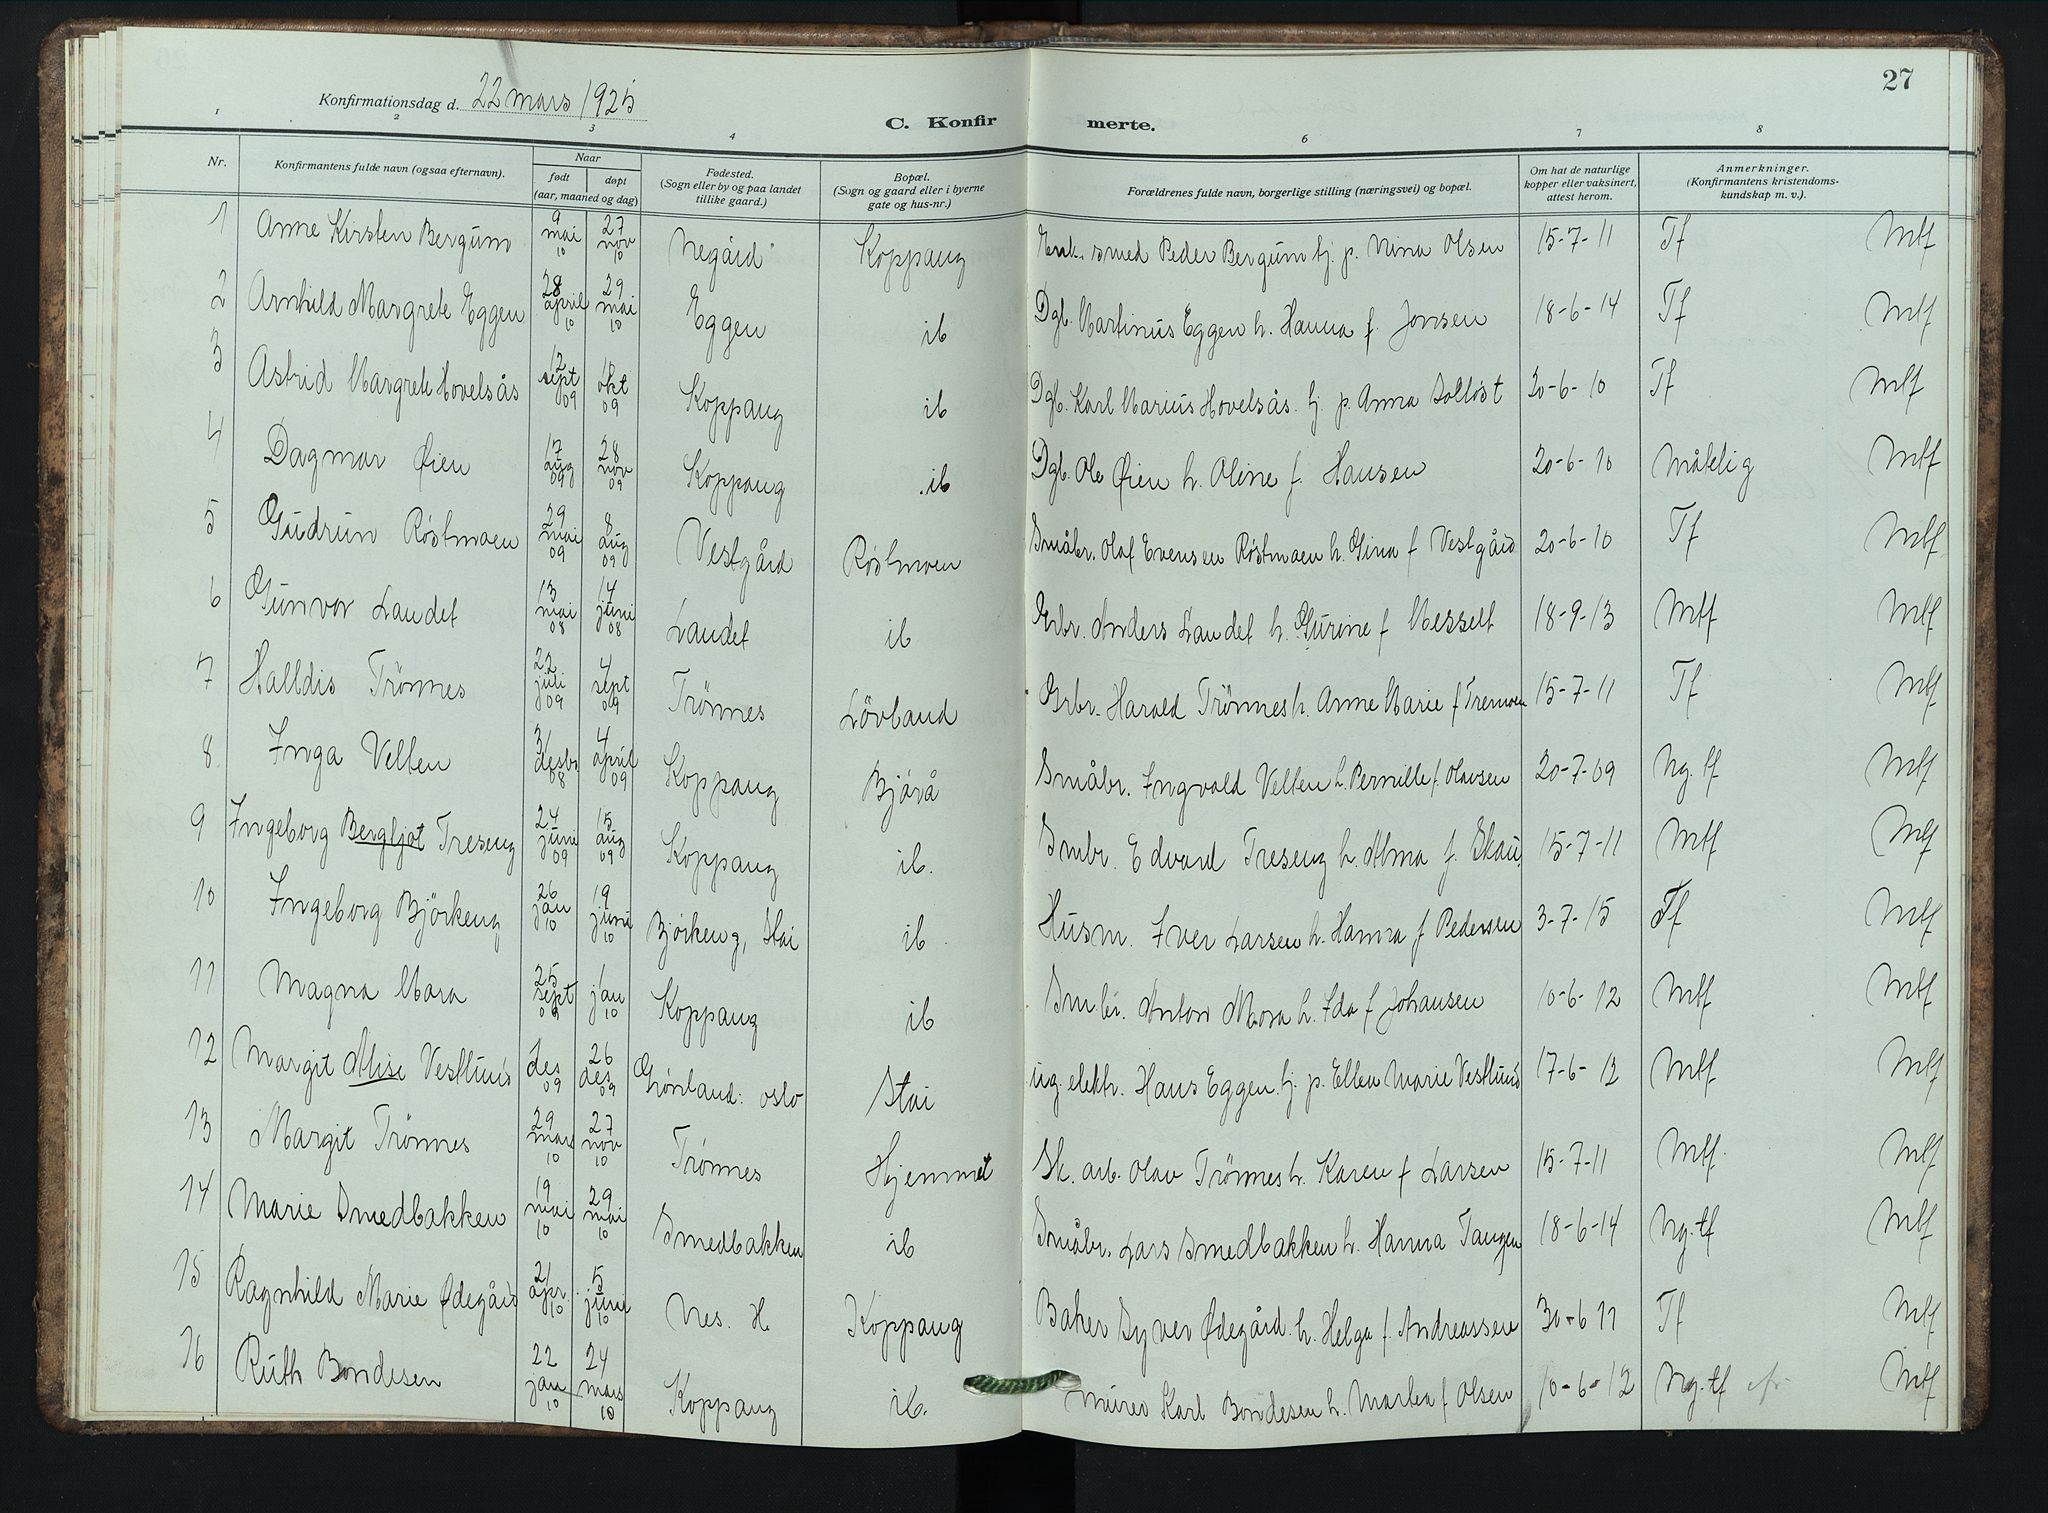 27
Konfirmationsdag d. 22 mars 1925
C. Konfirmerte.
1 2 3 4 5 6 7 8
Nr. Konfirmantens fulde navn (ogsaa efternavn). Naar født døpt (aar, maaned og dag) Fødested. (Sogn eller by og paa landet tillike gaard.) Bopæl. (Sogn og gaard eller i byerne gate og hus-nr.) Forældrenes fulde navn, borgerlige stilling (næringsvei) og bopæl. Om hat de naturlige kopper eller vaksinert, attest herom. Anmerkninger. (Konfirmantens kristendomskundskap m. v.).
1 Anne Kirsten Bergum 9 mai 10 27 nov 10 Negård Koppang smed Peder Bergum bj. p. Nina Olsen 15-7-11 Tf Mtf
2 Arnhild Margrete Eggen 28 april 10 29 mai 10 Eggen ib Dgl. Martinus Eggen h. Hanna f. Jonsen 18-6-14 Tf Mtf
3 Astrid Margrete Hovelsås 12 sept 09 okt 09 Koppang ib Dgl. Karl Marius Hovelsås. bj. p. Anna Solløst 20-6-10 Tf Mtf
4 Dagmar Øien 17 aug 09 28 nov 09 Koppang ib Dgl. Ole Øien h. Oline f. Hansen 20-6-10 Måtelig Mtf
5 Gudrun Røstmoen 29 mai 09 8 aug 09 Vestgård Røstmoen Småbr. Olaf Evensen Røstmoen h. Gina f Vestgård 20-6-10 Tf Mtf
6 Gunvor Landet 13 mai 08 14 juni 08 Landet ib Grbr. Anders Landet h. Gurine f Messelt 18-9-13 Mtf Mtf
7 Halldis Trönnes 22 juli 09 4 sept 09 Trönnes Lövland Grbr. Harald Trönnes h. Anne Marie f Tremoen 15-7-11 Tf Mtf
8 Inga Velten 31 desbr 08 4 april 09 Koppang Bjørå Småbr. Ingvald Velten h. Pernille f. Olavsen 20-7-09 Ng. tf Mtf
9 Ingeborg Bergljot Treseng 24 juni 09 15 aug 09 Koppang ib. Smbr. Edvard Treseng h. Alma f. Skau 15-7-11 Mtf Mtf
10 Ingeborg Björkeng 26 jan 10 19 juni 10 Björkeng, Stai ib Husm. Iver Larsen h. Hanna f Pedersen 3-7-15 Tf Mtf
11 Magna Mora 25 sept 09 1 jan 10 Koppang ib Smbr. Anton Mora h. Ida f Johansen 10-6-12 Mtf Mtf
12 Margit Alise Vestlund 1 des 09 26 des 09 Grønland. oslo Stai ug. elektr. Hans Eggen bj. p. Ellen Marie Vestlund 17-6-12 Mtf Mtf
13 Margit Trönnes 29 mars 10 27 nov 10 Trönnes Hjemmet Sk. arb. Olav Trönnes h. Karen f Larsen 15-7-11 Mtf Mtf
14 Marie Smedbakken 19 mai 10 29 mai 10 Smedbakken ib Småbr. Lars Smedbakken h. Hanna Tangen 18-6-14 Ng. tf Mtf
15 Ragnhild Marie Ødegård 21 apr. 10 5 juni 10 Nes. H. Koppang Baker Syver Ødegård h. Helga f. Andreassen 30-6 11 Tf Mtf
16 Ruth Bondesen 22 jan 10 24 mars 10 Koppang ib. murer Karl Bondesen h. Martea f Olsen 10-6-12 Ng. tf Mtf